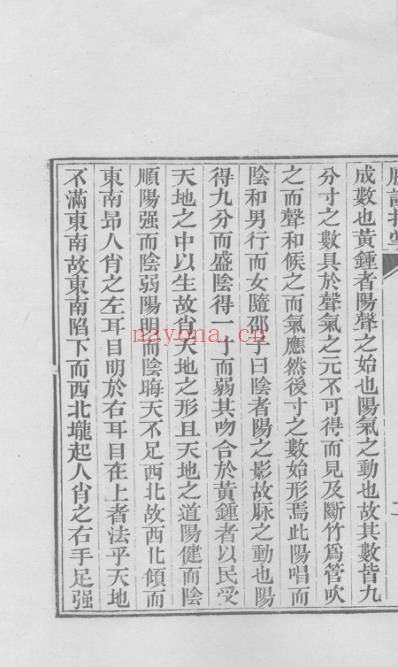 成數也黃鍾者陽聲之始也陽氣之動也故其數皆九
分寸之數具於聲氣之元不可得而見及斷竹爲管吹
之而聲和候之而氣應然後寸之數始形焉此陽唱而
陰和男行而女隨邵子曰陰者陽之影故脉之動也陽
得九分而盛陰得一寸而弱其吻合於黃鍾者以民受
天地之中以生故肖天地之形且天地之道陽健而陰
順陽强而陰弱陽明而陰晦天不足西北故西北傾而
東南昻人肖之左耳目明於右耳目在上者法乎天地
不滿東南故東南陷下而西北壠起人肖之右手足强
nayona.cn